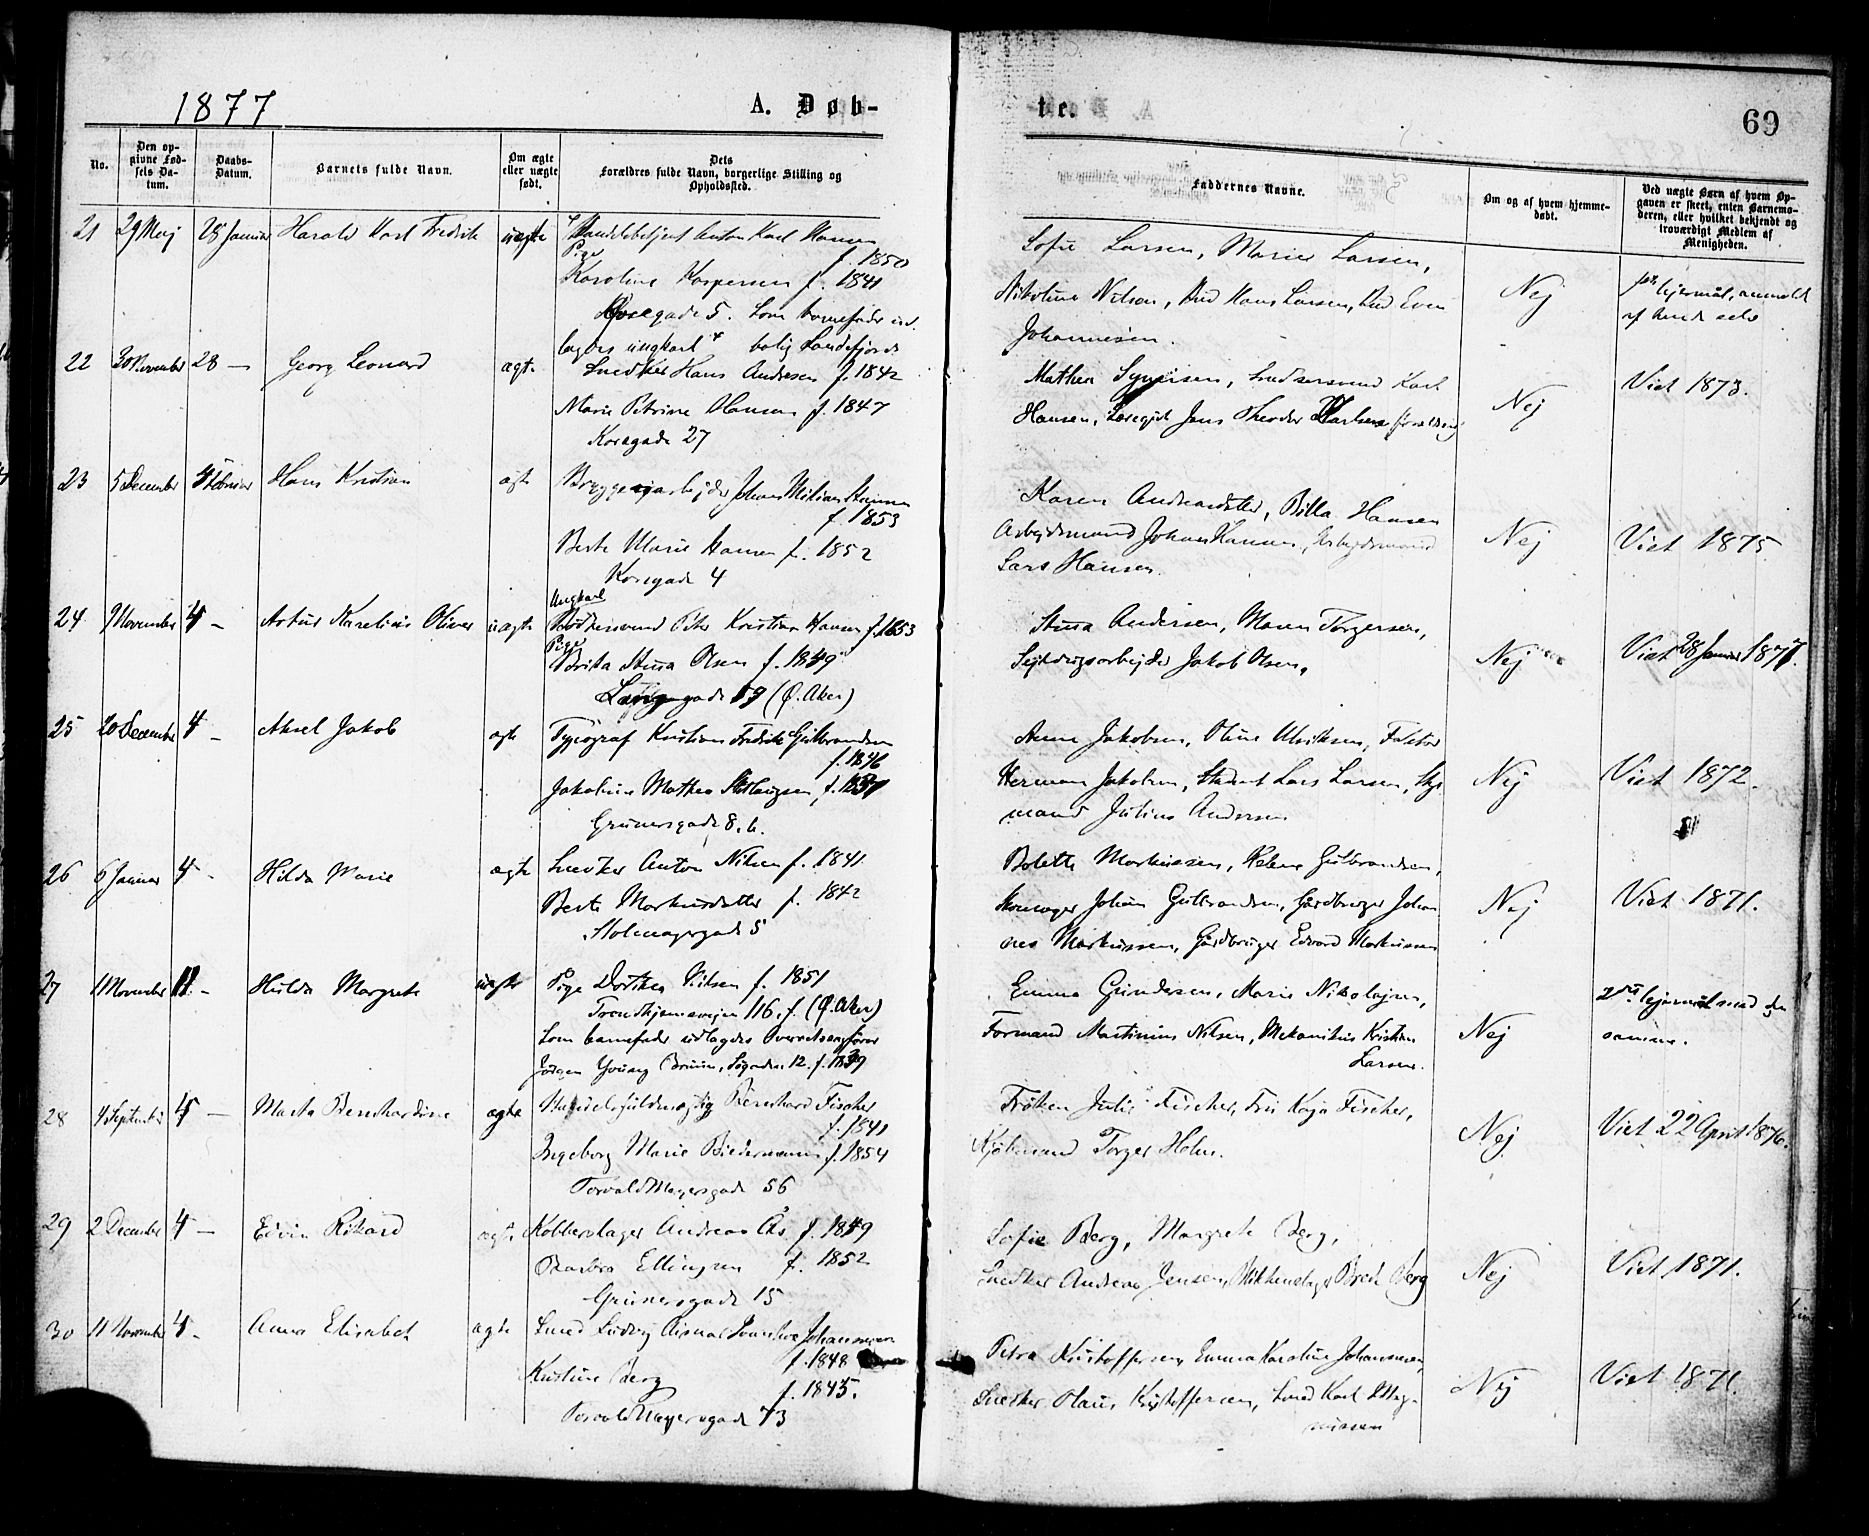 1877
A. Døb-
te.
69
No.
Den op-
givne Fød-
sels Da-
tum.
Daabs-
Datum.
Barnets fulde Navn.
Om ægte
eller uægte
født.
Dets
Forældres fulde Navn, borgerlige Stilling og
Opholdssted.
Faddernes Navne.
Om og af hvem hjemme-
døbt.
Ved uægte Børn af hvem Op-
gaven er skeet, enten Barnemo-
deren, eller hvilket bekjendt og
troværdigt Medlem af
Menigheden.
21 29 Maj 28 Januar Harald Karl Fredrik uægte Handelsbetjent Anton Karl Hansen
f. 1850
Pige
Karoline Kaspersen f. 1841
Korsgade 5. Som barnefader ud-
lagdes ungkarl bolig Sandefjord
Sofie Larsen, Marie Larsen,
Nikoline Nilsen, And Hans Larsen, And Even
Johannesen.
Nej
lejermål, anmeldt
af hende selv
22 30 November 28 — Georg Leonard ægte Snedker Hans Andresen f. 1842
Marie Petrine Hansen f. 1847
Korsgade 27
Mathea Syversen, Snedkersvend Karl
Hansen, Jens Theodor Karlsen
Nej
Viet 1873.
23 5 December 4 Februar Hans Kristian ægte Bryggeriarbejder Johan Hansen
f. 1853
Berte Marie Hansen f. 1852
Korsgade 4
Karen Andreasdatter, Hansen
Arbejdsmand Johan Hansen, Arbejdsmand
Lars Hansen.
Nej
Viet 1875
24 9 November 4 — Artur Karelius Oliver uægte Ungkarl
Bødkersvend Peter Kristian Hansen f. 1853
Pige
Olsen f. 1849
Langgade 19 (Ø. Aker)
Andersen, Maren Torgersen,
Sejldugsarbejder Jakob Olsen,
Nej
Viet 28 Januar 1877.
25 20 December 4 — Aksel Jakob ægte Typograf Kristian Fredrik Gulbrandsen
f. 1846
Jakobine Mathea
Grünersgade 8, b.
Anne Jakobsen, Oline Ulriksen, Faktor
Herman Jakobsen, Student Lars Larsen,
mand Julius Andersen
Nej
Viet 1872.
26 6 Januar 4 — Hilda Marie ægte Snedker Anton Nilsen f. 1841
Berte Markusdatter f. 1842
Stolmagergade 5
Bolette Markussen, Helene Gulbrandsen,
Skomager Johan Gulbrandsen, Gårdbruger Johan
nes Markussen, Gårdbruger Edvard Markussen
Nej
Viet 1871.
27 11 November 11 — Hulda Margrete uægte Pige Dorthea Nilsen f. 1851
Trondhjemsvejen 116, f. (Ø. Aker)
Som barnefader udlagdes Overretssagfører
Jørgen Young Bruun, Søgaden 12. f. 1839
Emma Gundersen, Marie Nikolajsen,
Formand Martinius Nilsen, Mekanikus Kristian
Larsen.
Nej
2det lejermål med den
samme.
28 4 September 4 — Marta Bernhardine ægte Handelsfuldmægtig Bernhard Fischer
f. 1841
Ingeborg Marie Biedermann f. 1854
Torvald Meyersgade 56
Frøken Julie Fischer, Fru Kaja Fischer,
Kjøbmand Torger Holm.
Nej
Viet 22 April 1876.
29 2 December 4 — Edvin Rikard ægte Kobberslager Andreas Ås f. 1849
Barbra Ellingsen f. 1852
Grünersgade 15
Sofie Berg, Margrete Berg,
Snedker Andreas Jensen, Berg
Nej
Viet 1871.
30 11 November 4 — Anna Elisabet ægte Smed Ludvig Johannesen
f. 1848
Kristine Berg
f. 1845.
Torvald Meyersgade 73
Petra Kristoffersen, Emma Karoline Johannesen,
Snedker Olaus Kristoffersen, Smed Karl Mag-
nussen
Nej
Viet 1871.